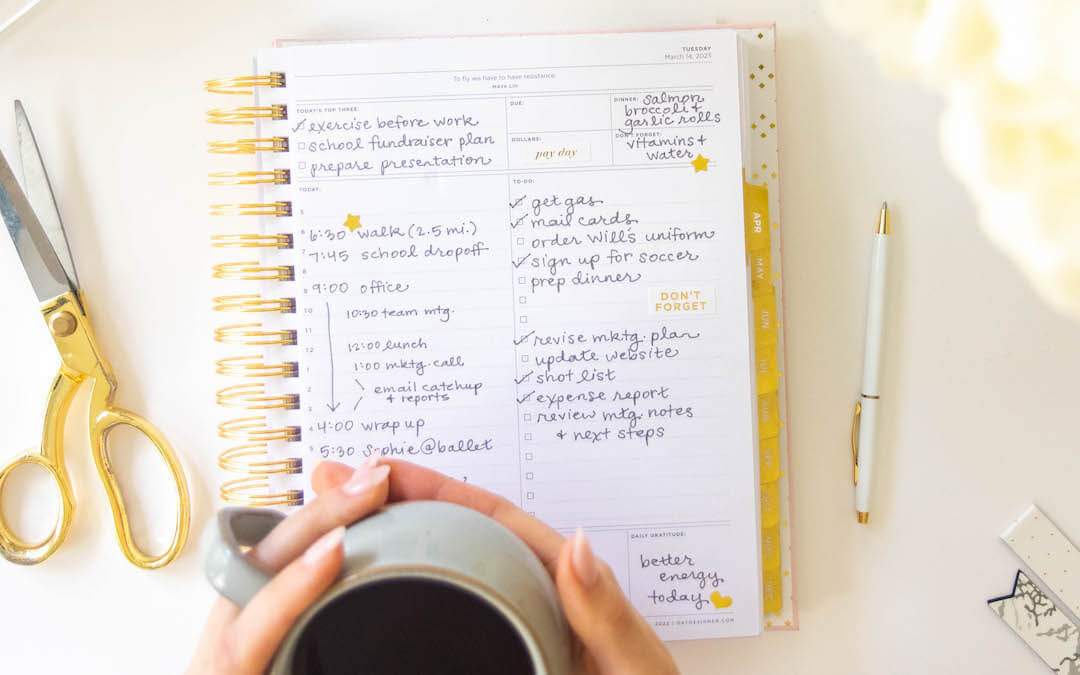 TUESDAY
March 14, 2023
To fly we have to have resistance.
MAYA LIN
TODAY'S TOP THREE:
exercise before work
school fundraiser plan
prepare presentation
DUE:
DOLLARS:
pay day
DINNER: salmon
broccoli &
garlic rolls
DON'T FORGET:
vitamins +
water
TODAY:
5
6 6:30 walk (2.5 mi.)
7 7:45 school dropoff
8
9 9:00 office
10 10:30 team mtg.
11
12 12:00 lunch
1 1:00 mktg. call
2 email catchup
& reports
3
4 4:00 wrap up
5 5:30 Sophie @ ballet
TO-DO:
get gas
mail cards
order Will's uniform
sign up for soccer
prep dinner
DON'T
FORGET
revise mktg. plan
update website
shot list
expense report
review mtg. notes
& next steps
DAILY GRATITUDE:
better
energy
today
2022 | DAYDESIGNER.COM
APR
MAY
JUN